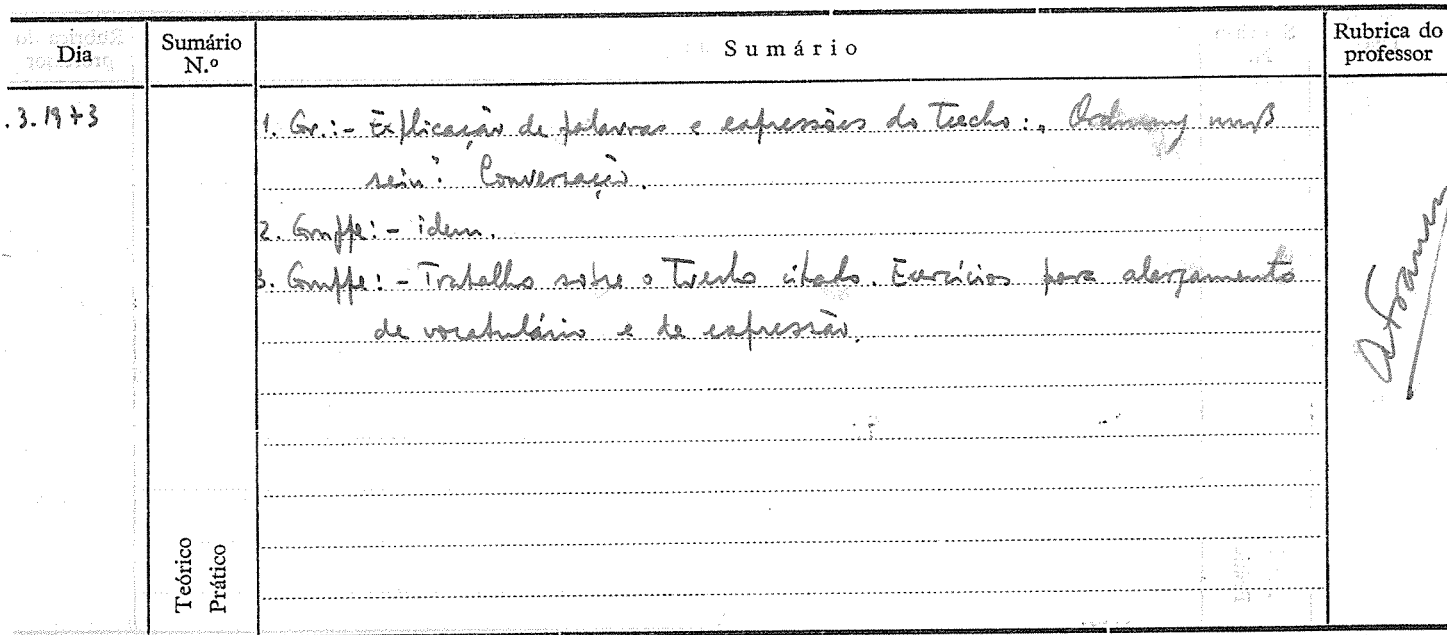 Dia
Sumário
N.º
Sumário
Rubrica do
professor
.3.1973
1. Gr.: - Explicação de palavras e expressões do Trecho: „Ordnung muß
sein“. Conversação.
2. Gruppe: - idem.
3. Gruppe: - Trabalho sobre o Trecho citado. Exercícios para alargamento
de vocabulário e de expressão.
Teórico
Prático